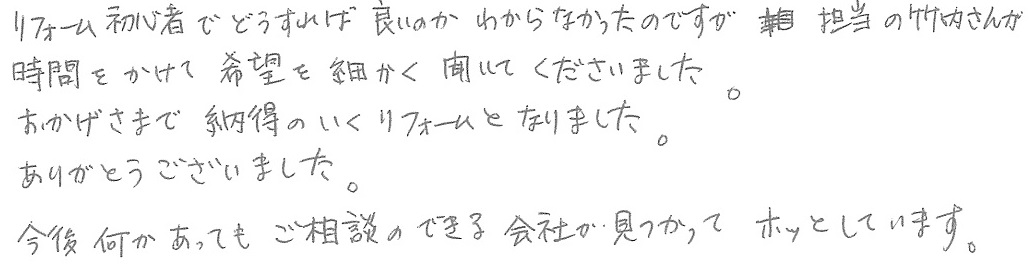 リフォーム初心者でどうすれば良いのかわからなかったのですが 担当の竹内さんが
時間をかけて希望を細かく聞いてくださいました。
おかげさまで納得のいくリフォームとなりました。
ありがとうございました。
今後何かあってもご相談のできる会社が見つかってホッとしています。